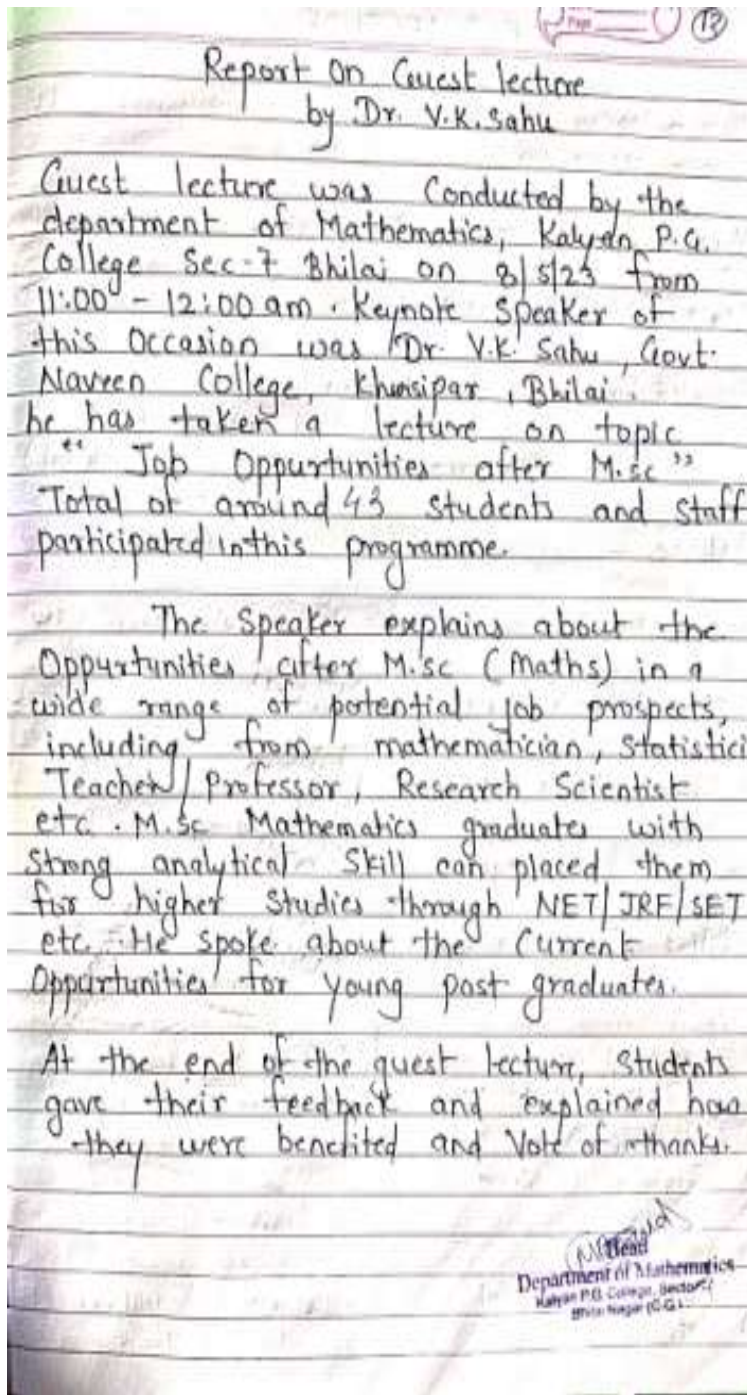 Page
13
Report On Guest lecture
by Dr. V.K. Sahu
Guest lecture was Conducted by the
department of Mathematics, Kalyan P.G.
College Sec-7 Bhilai on 8/5/23 from
11:00 - 12:00 am. Keynote Speaker of
this Occasion was Dr. V.K. Sahu, Govt.
Naveen College, Khursipar, Bhilai.
he has taken a lecture on topic
“ Job Oppurtunities after M.sc ”
Total of around 43 students and staff
participated in this programme.
The Speaker explains about the
Oppurtunities after M.sc (Maths) in a
wide range of potential job prospects,
including from mathematician, Statistici
Teacher/Professor, Research Scientist
etc. M.Sc Mathematics graduates with
Strong analytical Skill can placed them
for higher Studies through NET/JRF/SET
etc. He spoke about the Current
Oppartunities for young post graduates.
At the end of the guest lecture, Students
gave their feedback and explained how
they were benefited and Vote of thanks.
Head
Department of Mathematics
Kalyan P.G. College, Sector-7
Bhilai Nagar (C.G.)